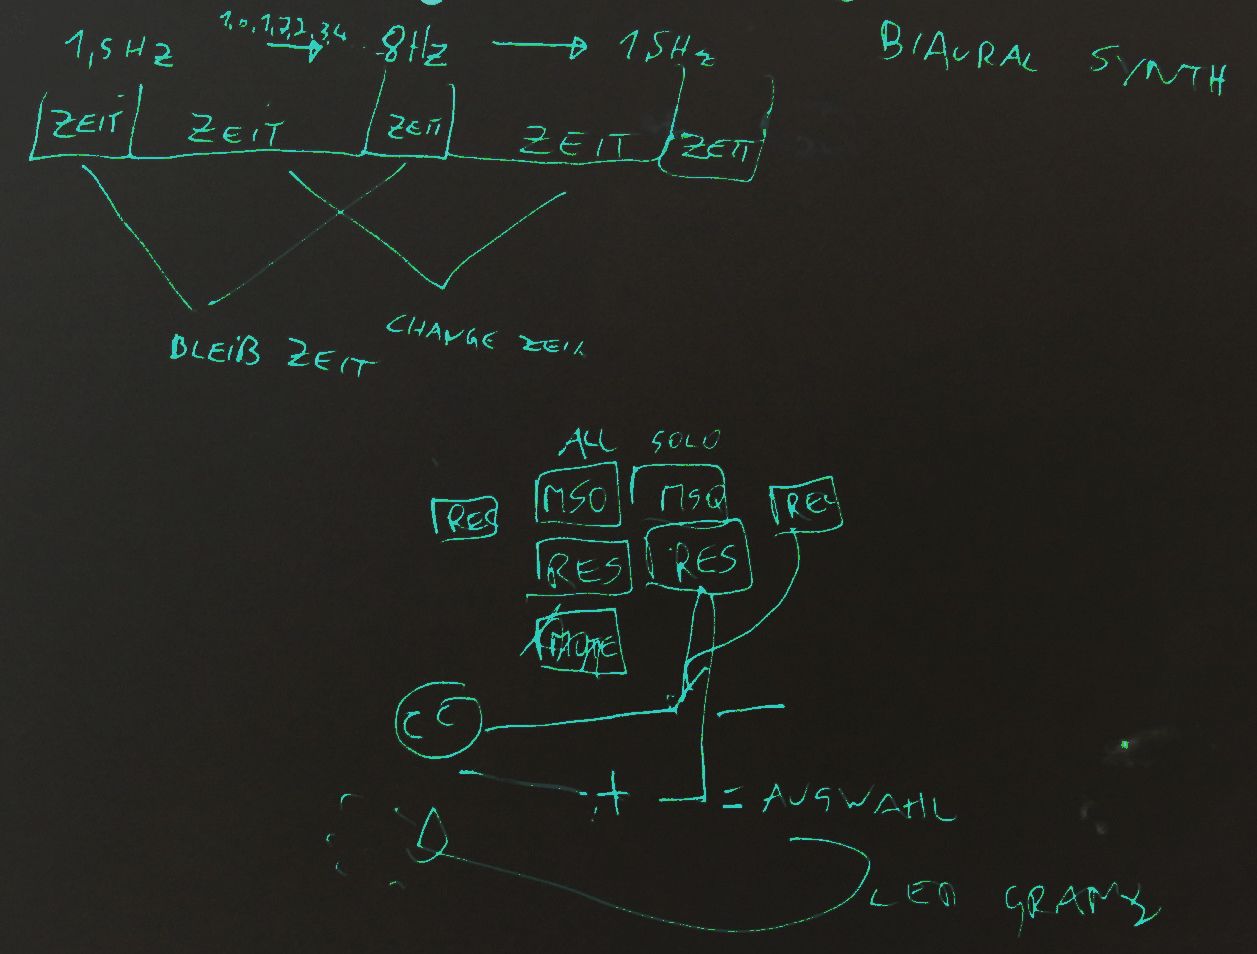 1,5Hz → 8Hz → 1,5Hz
BIAURAL SYNTH
ZEIT ZEIT ZEIT ZEIT ZEIT
BLEIB ZEIT
CHANGE ZEIT
ALL SOLO
RES MSO MSQ REC
RES RES
= AUSWAHL
LED